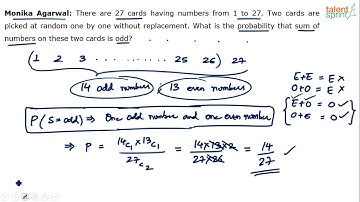 talent
sprint
Monika Agarwal: There are 27 cards having numbers from 1 to 27. Two cards are
picked at random one by one without replacement. What is the probability that sum of
numbers on these two cards is odd?
(1 2 3 ............ 25 26) 27
14 odd numbers, 13 even numbers
E+E = E ×
O+O = E ×
E+O = O ✓
O+E = O ✓
P(S=odd) ⇒ One odd number and one even number
⇒ P = 14C1 × 13C1 / 27C2 = 14×13×2 / 27×26 = 14/27 ✓